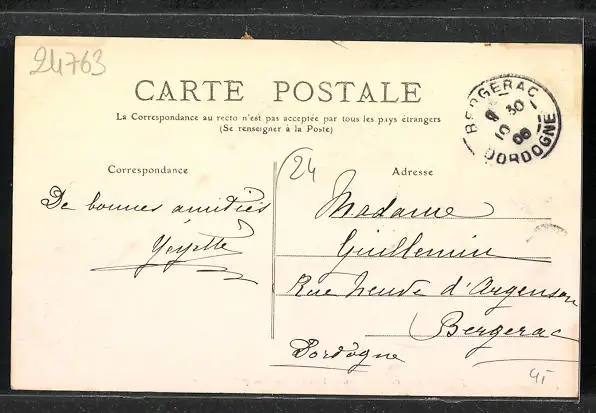 24763
CARTE POSTALE
La Correspondance au recto n'est pas acceptée par tous les pays étrangers
(Se renseigner à la Poste)
BERGERAC
30
10
06
DORDOGNE
Correspondance
De bonnes amitiés
24
Adresse
Madame
Guillemin
Rue neuve d'Argenson
Bergerac
Dordogne